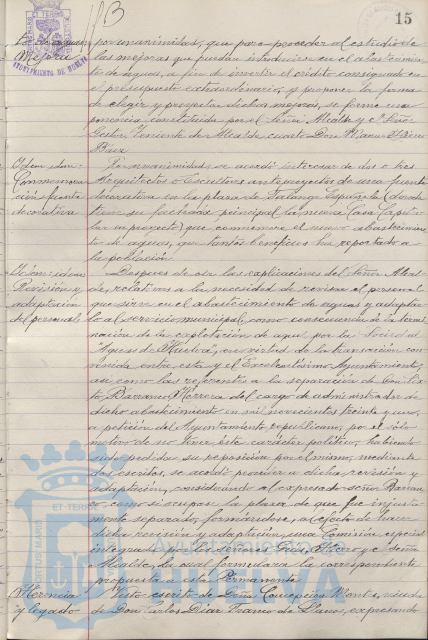 15
por unanimidad, que para proceder al estudio de
Mejora las mejoras que puedan introducirse en el abastecimien-
AYUNTAMIENTO DE HUELVA
to de aguas, a fin de invertir el crédito consignado en
el presupuesto extraordinario, y proponer la forma
de elegir y proyectar dichas mejoras, se forme una
ponencia, constituida por el Señor Alcalde y el Señor
Gestor, Teniente de Alcalde cuarto Don Manuel
Idem idem: Por unanimidad, se acordó interesar de dos o tres
Conmemora- Arquitectos o Escultores anteproyectos de una fuente
ción fuente decorativa en la plaza de Falange Española (donde
decorativa tiene su fachada principal la nueva Casa Capitu-
lar en proyecto) que conmemore el nuevo abastecimien-
to de aguas, que tantos beneficios ha reportado a
la población.
Idem: idem Despues de oir las explicaciones del Señor Alcal-
Revisión y de, relativas a la necesidad de revisar el personal
adaptación que sirve en el abastecimiento de aguas y adaptar-
del personal lo al servicio municipal, como consecuencia de la termi-
nación de la explotación de aguas por la Sociedad
Aguas de Huelva, en virtud de la transacción con-
venida entre esta y el Excelentísimo Ayuntamiento,
así como las referentes a la separación de Don
Barranco Herrera del cargo de administrador de
dicho abastecimiento en mil novecientos treinta y uno,
a petición del Ayuntamiento republicano, por el solo
motivo de no tener este carácter político, habiendo
sido pedida su reposición por el mismo, mediante
dos escritos, se acordó proceder a dicha revisión y
adaptación, considerando al expresado señor Barran-
co, como si ocupase la plaza de que fue injusta-
mente separado, formándose, al efecto de hacer
dicha revisión y adaptación, una Comisión especial
integrada por los señores y el señor
Alcalde, la cual formulará la correspondiente
propuesta a esta Permanente.
Herencia Visto escrito de Doña Concepción viuda
y legado de Don Carlos Díaz Franco de Llanos, expresando